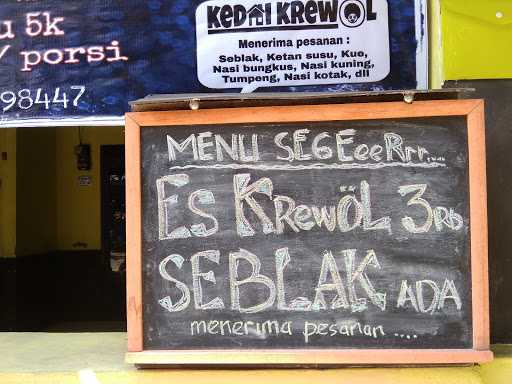 u 5k
/ porsi
98447
KEDAI KREWOL
Menerima pesanan :
Seblak, Ketan susu, Kue,
Nasi bungkus, Nasi kuning,
Tumpeng, Nasi kotak, dll
MENU SEGEeeRrr.....
Es KrewÖL 3Rb
SEBLAK ADA
menerima pesanan ....